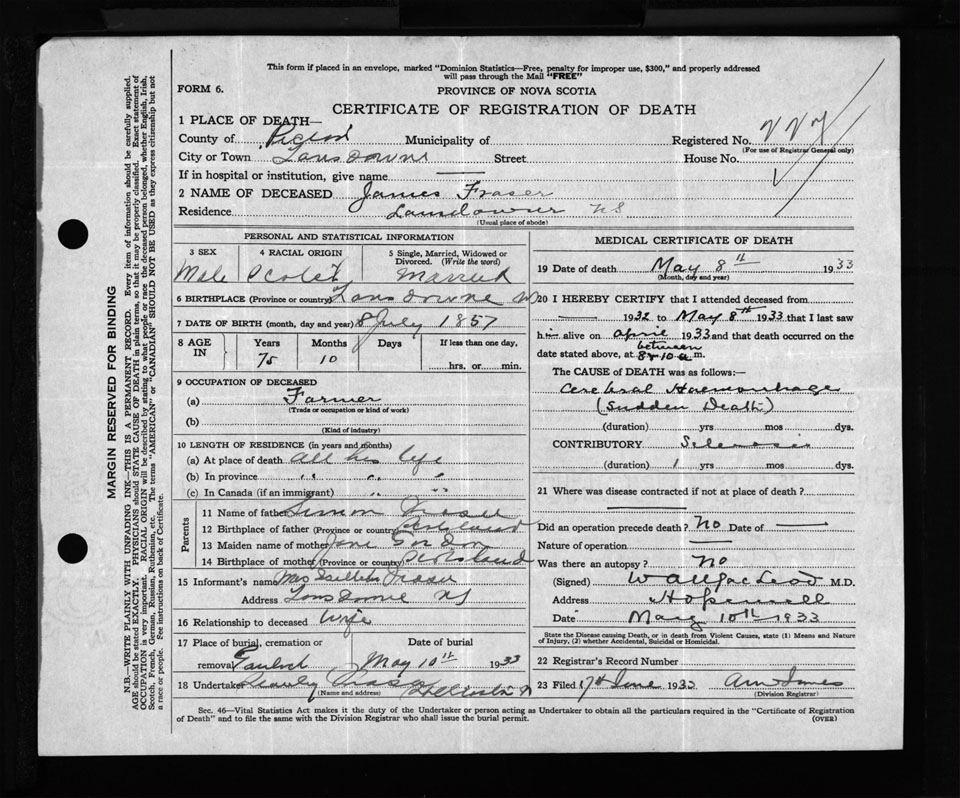 This form if placed in an envelope, marked "Dominion Statistics—Free, penalty for improper use, $300," and properly addressed
will pass through the Mail "FREE"
FORM 6.
PROVINCE OF NOVA SCOTIA
CERTIFICATE OF REGISTRATION OF DEATH
1 PLACE OF DEATH—
County of Pictou Municipality of Registered No. 227
(For use of Registrar General only)
City or Town Lansdowne Street House No.
If in hospital or institution, give name —
2 NAME OF DECEASED James Fraser
Residence Lansdowne NS
(Usual place of abode)
PERSONAL AND STATISTICAL INFORMATION
3 SEX 4 RACIAL ORIGIN 5 Single, Married, Widowed or
Divorced. (Write the word)
Male Scotch Married
6 BIRTHPLACE (Province or country) Lansdowne
7 DATE OF BIRTH (month, day and year) 8 July 1857
8 AGE IN Years Months Days If less than one day,
75 10 hrs. or min.
9 OCCUPATION OF DECEASED
(a) Farmer
(Trade or occupation or kind of work)
(b)
(Kind of industry)
10 LENGTH OF RESIDENCE (in years and months)
(a) At place of death all his life
(b) In province " " "
(c) In Canada (if an immigrant) " "
Parents
11 Name of father Simon Fraser
12 Birthplace of father (Province or country) Scotland
13 Maiden name of mother Jane Gordon
14 Birthplace of mother (Province or country) Scotland
15 Informant's name Mrs Fraser
Address Lansdowne NS
16 Relationship to deceased Wife
17 Place of burial, cremation or Date of burial
removal May 10th 1933
18 Undertaker
(Name and address)
MEDICAL CERTIFICATE OF DEATH
19 Date of death May 8th 1933
(Month, day and year)
20 I HEREBY CERTIFY that I attended deceased from
— 1932 to May 8th 1933 that I last saw
him alive on april 1933 and that death occurred on the
between
date stated above, at 8 & 10 a m.
The CAUSE of DEATH was as follows:
Cerebral Haemorrhage
(Sudden Death)
(duration) yrs mos dys.
CONTRIBUTORY Sclerosis
(duration) 1 yrs mos dys.
21 Where was disease contracted if not at place of death?
Did an operation precede death? No Date of —
Nature of operation —
Was there an autopsy? No
(Signed) M.D.
Address Hopewell
Date May 10th 1933
State the Disease causing Death, or in death from Violent Causes, state (1) Means and Nature
of Injury, (2) whether Accidental, Suicidal or Homicidal
22 Registrar's Record Number
23 Filed June 1933
(Division Registrar)
Sec. 46—Vital Statistics Act makes it the duty of the Undertaker or person acting as Undertaker to obtain all the particulars required in the "Certificate of Registration
of Death" and to file the same with the Division Registrar who shall issue the burial permit.
(OVER)
MARGIN RESERVED FOR BINDING
N.B.—WRITE PLAINLY WITH UNFADING INK—THIS IS A PERMANENT RECORD. Every item of information should be carefully supplied.
AGE should be stated EXACTLY. PHYSICIANS should STATE CAUSE OF DEATH in plain terms, so that it may be properly classified. Exact statement of
OCCUPATION is very important. RACIAL ORIGIN will be described by stating to what people or race the deceased person belonged, whether English, Irish,
Scotch, French, German, Russian, Ruthenian, etc. The terms "AMERICAN" or "CANADIAN" SHOULD NOT BE USED as they express citizenship but not
a race or people. See instructions on back of Certificate.